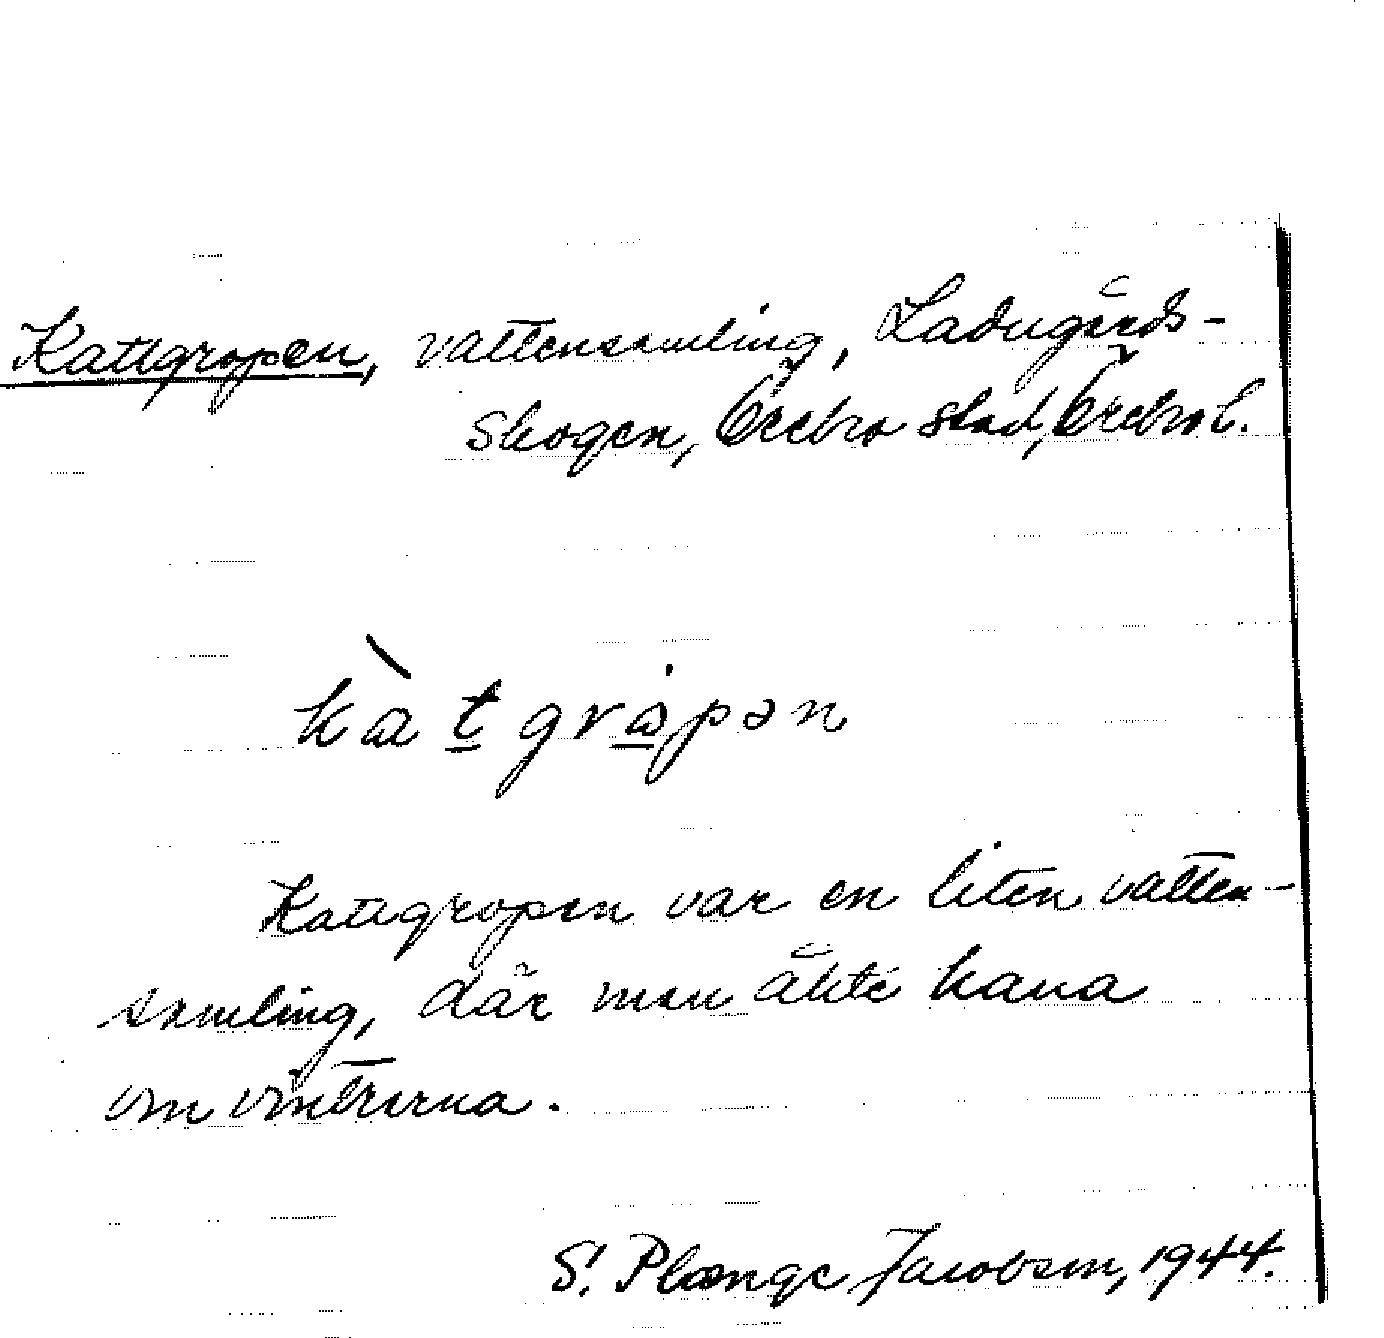 Kattgropen, vattensamling, Ladugårds-
skogen, Örebro stad, Örebro l.
kàt gråpən
Kattgropen var en liten vatten-
samling, där man åkte kana
om vintrarna.
S. Plænge Jacobson, 1944.